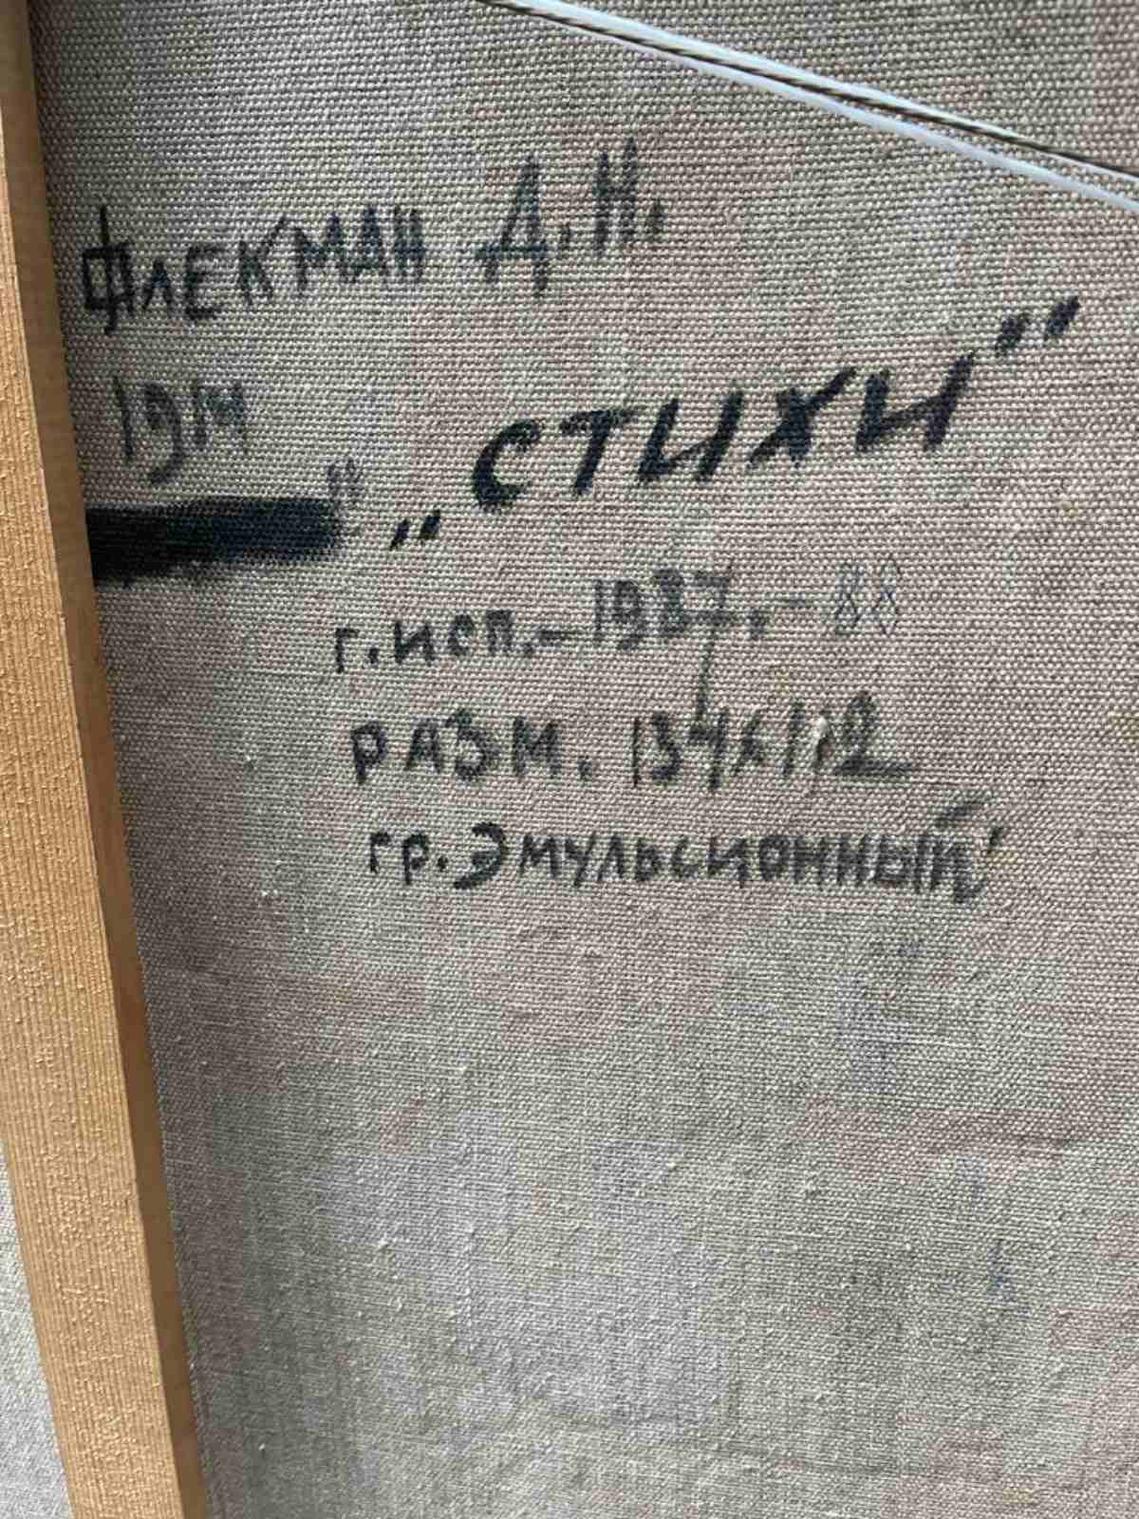 ФЛЕКМАН Д.Н.
1914
„СТИХИ"
г.исп.-1987.-88
РАЗМ. 134х112
гр.Эмульсионный